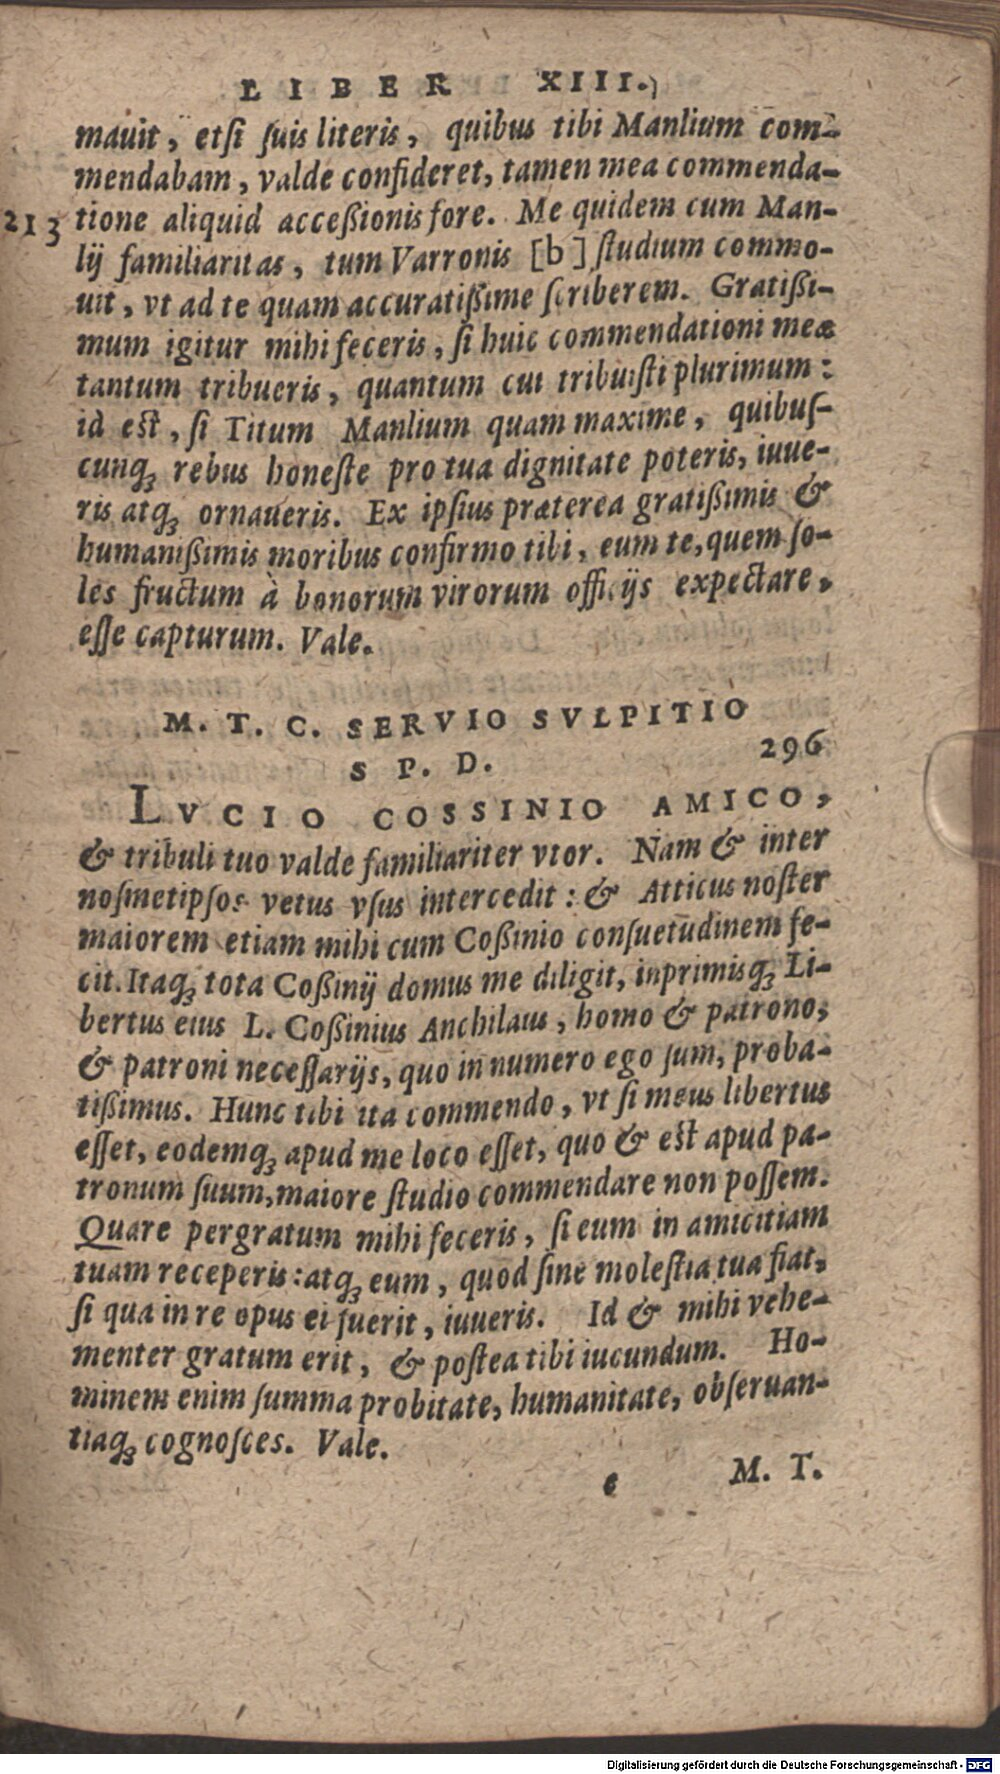 LIBER XIII.
mauit, etſi ſuis literis, quibus tibi Manlium com-
mendabam, valde confideret, tamen mea commenda-
213 tione aliquid acceßionis fore. Me quidem cum Man-
lij familiaritas, tum Varronis [b] ſtudium commo-
uit, vt ad te quam accuratißime ſcriberem. Gratißi-
mum igitur mihi feceris, ſi huic commendationi meæ
tantum tribueris, quantum cui tribuiſti plurimum:
id eſt, ſi Titum Manlium quam maxime, quibuſ-
cunqꝫ rebus honeſte pro tua dignitate poteris, iuue-
ris atqꝫ ornaueris. Ex ipſius præterea gratißimis &
humanißimis moribus confirmo tibi, eum te, quem ſo-
les fructum à bonorum virorum officijs expectare,
eſſe capturum. Vale.
M. T. C. SERVIO SVLPITIO
S P. D. 296
LVCIO COSSINIO AMICO,
& tribuli tuo valde familiariter vtor. Nam & inter
noſmetipſos vetus vſus intercedit: & Atticus noſter
maiorem etiam mihi cum Coßinio conſuetudinem fe-
cit. Itaqꝫ tota Coßinij domus me diligit, inprimisqꝫ Li-
bertus eius L. Coßinius Anchilaus, homo & patrono,
& patroni neceſſarijs, quo in numero ego ſum, proba-
tißimus. Hunc tibi ita commendo, vt ſi meus libertus
eſſet, eodemqꝫ apud me loco eſſet, quo & eſt apud pa-
tronum ſuum, maiore ſtudio commendare non poſſem.
Quare pergratum mihi feceris, ſi eum in amicitiam
tuam receperis: atqꝫ eum, quod ſine moleſtia tua fiat,
ſi qua in re opus ei fuerit, iuueris. Id & mihi vehe-
menter gratum erit, & poſtea tibi iucundum. Ho-
minem enim ſumma probitate, humanitate, obſeruan-
tiaqꝫ cognoſces. Vale.
e M. T.
Digitalisierung gefördert durch die Deutsche Forschungsgemeinschaft - DFG